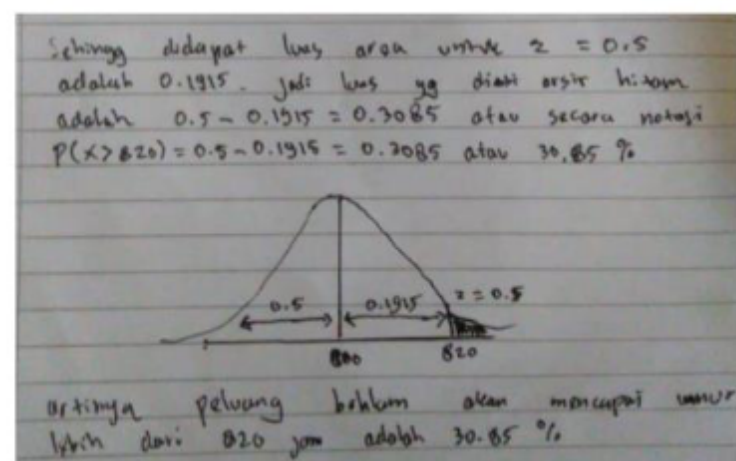 Sehingg didapat luas area untuk z = 0.5
adalah 0.1915. Jadi luas yg diarsir hitam
adalah 0.5 - 0.1915 = 0.3085 atau secara notasi
P(x > 820) = 0.5 - 0.1915 = 0.3085 atau 30.85 %
z = 0.5
0.5 0.1915
800 820
artinya peluang bohlam akan mencapai umur
lebih dari 820 jam adalah 30.85 %